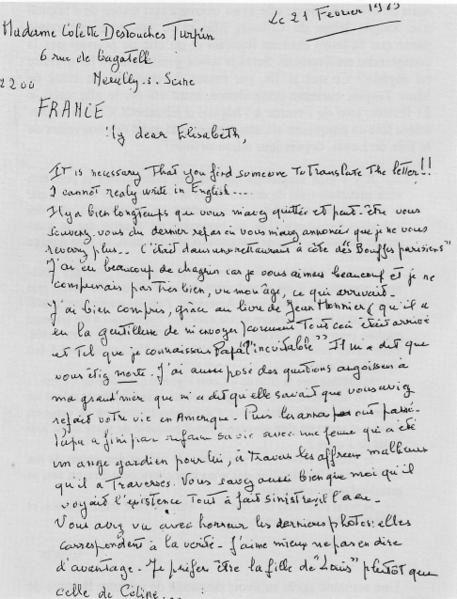 Le 21 Février 19
Madame Colette Destouches Turpin
6 rue de Bagatelle
2200 Neuilly. s. Seine
FRANCE
My dear Elisabeth,
It is necessary That you find someone To translate The letter!!
I cannot realy write in English...
Il y a bien longtemps que vous m'avez quittée et peut-être vous
souvenez-vous du dernier repas où vous m'avez annoncée que je ne vous
reverrai plus... C'était dans un restaurant à côté des "Bouffes parisiens"
J'ai eu beaucoup de chagrin car je vous aimais beaucoup et je ne
comprenais pas très bien, vu mon âge, ce qui arrivait.
J'ai bien compris, grâce au livre de Jean Monnier (qu'il a
eu la gentillesse de m'envoyer) comment Tout ceci était arrivé
et Tel que je connaissais Papa "l'inévitable" Il m'a dit que
vous étiez morte. J'ai aussi posé des questions angoissées à
ma grand'mère qui m'a dit qu'elle savait que vous aviez
refait votre vie en Amérique. Puis les années ont passé.
Papa a fini par refaire sa vie avec une femme qui a été
un ange gardien pour lui, à travers les affreux malheurs
qu'il a Traversés. Vous savez aussi bien que moi qu'il
voyait l'existence Tout à fait sinistre, il l'a eu.
Vous avez vu avec horreur les dernières photos: elles
correspondent à la vérité. J'aime mieux ne pas en dire
d'avantage. Je préfère être la fille de "Louis" plutôt que
celle de Céline...